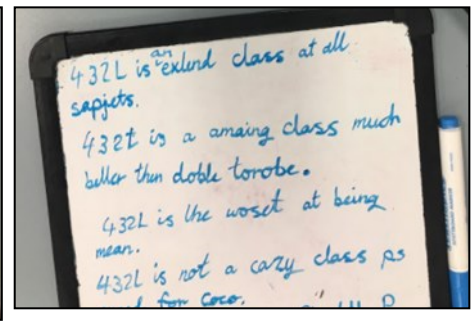 432L is an exlend class at all
sapjets.
432t is a amaing class much
beller then doble torobe.
432L is the woset at being
mean.
432L is not a cazy class ps
for coco.